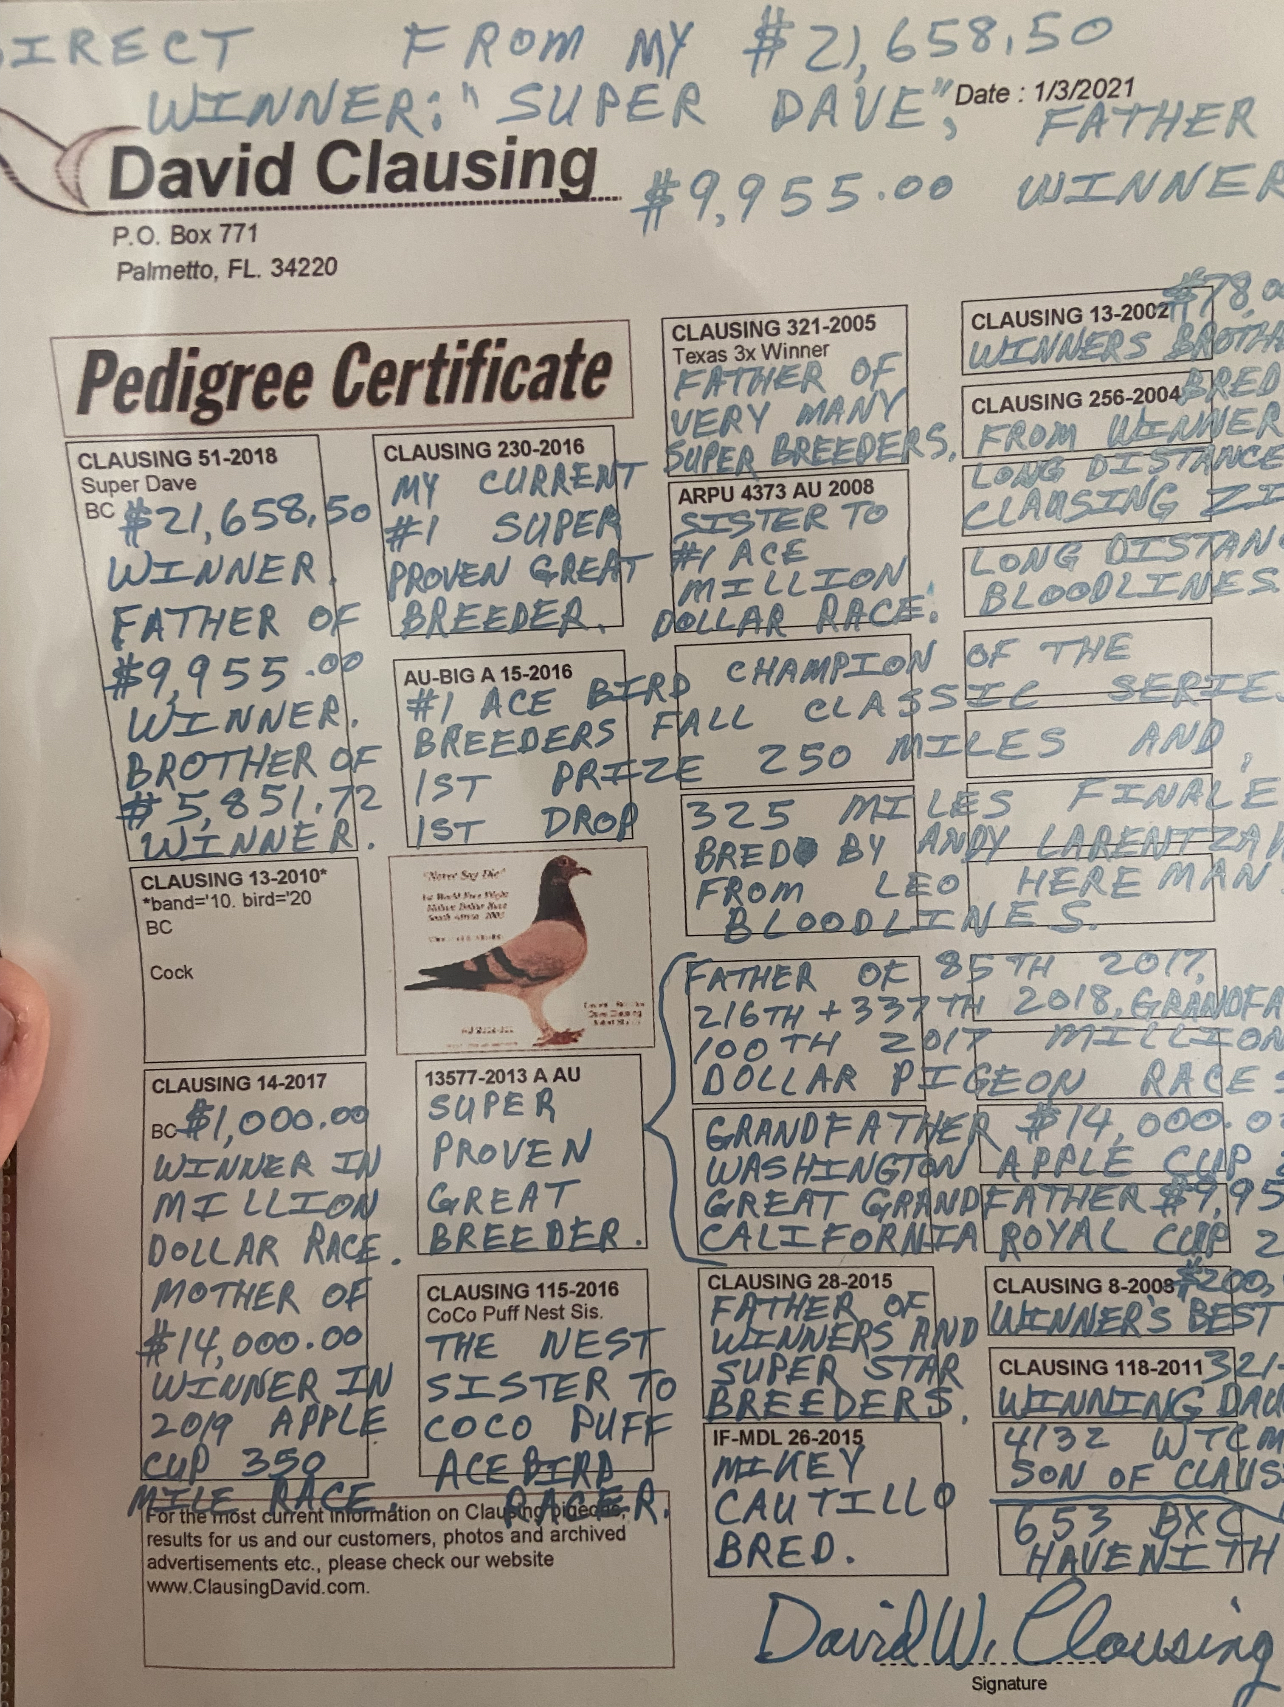 DIRECT FROM MY $21,658.50
WINNER: "SUPER DAVE", FATHER
Date : 1/3/2021
David Clausing
$9,955.00 WINNER
P.O. Box 771
Palmetto, FL. 34220
Pedigree Certificate
CLAUSING 51-2018
Super Dave
BC $21,658.50
WINNER.
FATHER OF
$9,955.00
WINNER.
BROTHER OF
$5,851.72
WINNER.
CLAUSING 13-2010*
*band='10. bird='20
BC
Cock
CLAUSING 14-2017
BC $1,000.00
WINNER IN
MILLION
DOLLAR RACE.
MOTHER OF
$14,000.00
WINNER IN
2019 APPLE
CUP 350
MILE RACE.
CLAUSING 230-2016
MY CURRENT
#1 SUPER
PROVEN GREAT
BREEDER.
AU-BIG A 15-2016
#1 ACE BIRD CHAMPION OF THE
BREEDERS FALL CLASSIC SERIES
1ST PRIZE 250 MILES AND
1ST DROP
325 MILES FINALE
BRED BY ANDY LARENTZA
FROM LEO HEREMAN
BLOODLINES.
"Never Say Die"
13577-2013 A AU
SUPER
PROVEN
GREAT
BREEDER.
FATHER OF 85TH 2017,
216TH + 337TH 2018, GRANDFA
100TH 2017 MILLION
DOLLAR PIGEON RACES
GRANDFATHER $14,000.0
WASHINGTON APPLE CUP
GREAT GRANDFATHER $9,95
CALIFORNIA ROYAL CUP 2
CLAUSING 115-2016
CoCo Puff Nest Sis.
THE NEST
SISTER TO
COCO PUFF
ACE BIRD
RACER.
CLAUSING 321-2005
Texas 3x Winner
FATHER OF
VERY MANY
SUPER BREEDERS.
ARPU 4373 AU 2008
SISTER TO
#1 ACE
MILLION
DOLLAR RACE.
CLAUSING 28-2015
FATHER OF
WINNERS AND
SUPER STAR
BREEDERS.
IF-MDL 26-2015
MIKEY
CAUTILLO
BRED.
CLAUSING 13-2002 $78,0
WINNERS BROTHE
CLAUSING 256-2004 BRED
FROM WINNER
LONG DISTANCE
CLAUSING ZI
LONG DISTAN
BLOODLINES.
CLAUSING 8-2008 $200,
WINNER'S BEST
CLAUSING 118-2011 321-
WINNING DAU
4132 WTCM
SON OF CLAUS
653 BXC
HAVENITH
For the most current information on Clausing pigeons,
results for us and our customers, photos and archived
advertisements etc., please check our website
www.ClausingDavid.com.
David W. Clausing
Signature